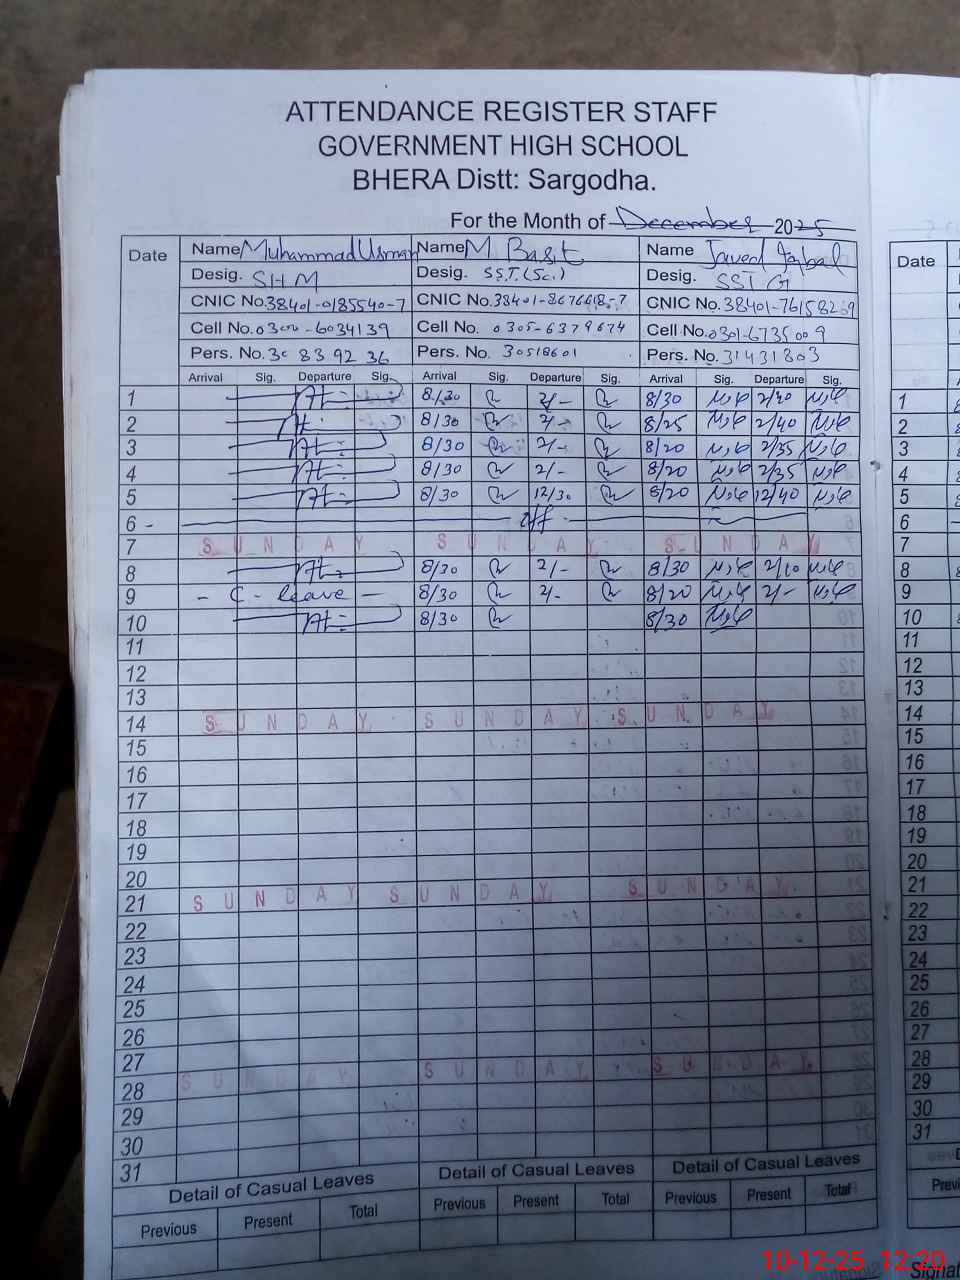 ATTENDANCE REGISTER STAFF
GOVERNMENT HIGH SCHOOL
BHERA Distt: Sargodha.
For the Month of December 2025
Date Name Muhammad Usman Name M Basit Name Javed Iqbal Date
Desig. SHM Desig. SST.(Sc.) Desig. SST G
CNIC No. 38401-0185540-7 CNIC No. 38401-8676618-7 CNIC No. 38401-76158269
Cell No. 0300-6034139 Cell No. 0305-6379674 Cell No. 0301-6735009
Pers. No. 30 83 92 36 Pers. No. 30518601 Pers. No. 31431803
Arrival Sig. Departure Sig. Arrival Sig. Departure Sig. Arrival Sig. Departure Sig.
1 8/30 2/- 8/30 2/40 1
2 8/30 2/- 8/25 2/40 2
3 8/30 2/- 8/20 2/35 3
4 8/30 2/- 8/20 2/35 4
5 8/30 12/30 8/20 12/40 5
6 - off 6
7 SUNDAY SUNDAY SUNDAY 7
8 8/30 2/- 8/30 2/10 8
9 - C - leave - 8/30 2/- 8/20 2/- 9
10 8/30 8/30 10
11 11
12 12
13 13
14 SUNDAY SUNDAY SUNDAY 14
15 15
16 16
17 17
18 18
19 19
20 20
21 SUNDAY SUNDAY SUNDAY 21
22 22
23 23
24 24
25 25
26 26
27 27
28 SUNDAY SUNDAY SUNDAY 28
29 29
30 30
31 31
Detail of Casual Leaves Detail of Casual Leaves Detail of Casual Leaves
Previous Present Total Previous Present Total Previous Present Total
10-12-25 12:20